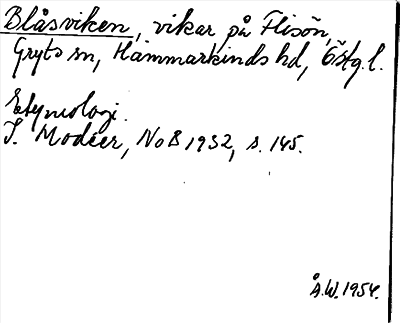 Blåsviken, vikar på Flisön,
Gryts sn, Hammarkinds hd, Östg.l.
Etymologi.
I. Modéer, NoB 1932, s. 145.
Å.W. 1954.